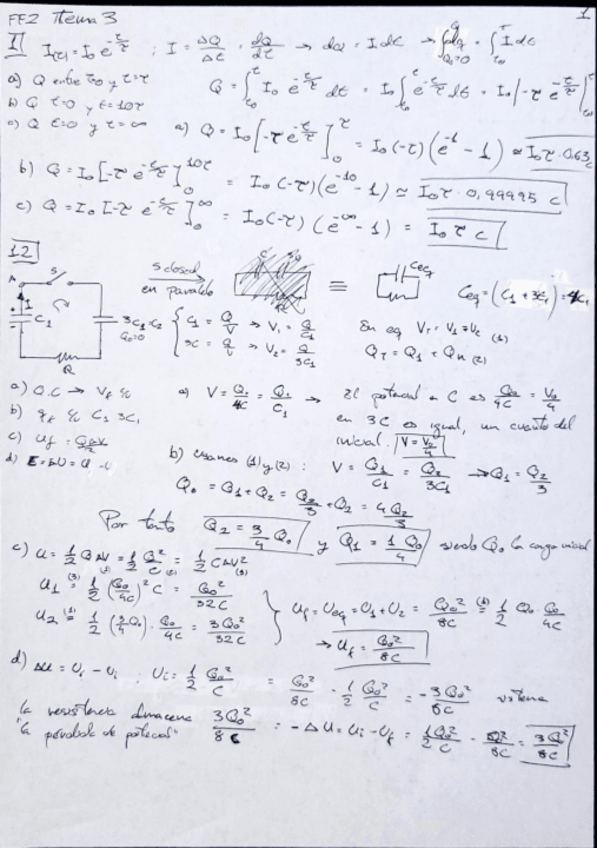 FF2 Tema 3
1
1] I(t) = I₀ e^(-t/τ) ; I = ΔQ/Δt = dQ/dt → dQ = I dt → ∫_{Q₀=0}^{Q} dq = ∫_{t₀}^{t} I dt
a) Q entre t=0 y t=τ
Q = ∫_{t₀}^{t} I₀ e^(-t/τ) dt = I₀ ∫_{t₀}^{t} e^(-t/τ) dt = I₀ [-τ e^(-t/τ)]_{t₀}^{t}
b) Q t=0 y t=10τ
c) Q t=0 y t=∞
a) Q = I₀ [-τ e^(-t/τ)]_0^τ = I₀ (-τ) (e^(-1) - 1) ≃ I₀ τ · 0,63 C
b) Q = I₀ [-τ e^(-t/τ)]_0^{10τ} = I₀ (-τ)(e^(-10) - 1) ≃ I₀ τ · 0,99995 C
c) Q = I₀ [-τ e^(-t/τ)]_0^∞ = I₀ (-τ) (e^(-∞) - 1) = I₀ τ C
12]
A S
I
C₁
3C₁=C₂
Q₀=0
R
S closed
en paralelo
≡
Ceq
Ceq = (C₁ + 3C₁) = 4C₁
C₁ = Q/V → V₁ = Q/C₁
3C = Q/V → V₂ = Q/3C₁
En eq V_T = V₁ = V₂ (1)
Q_T = Q₁ + Q_n (2)
a) Q.C → V_f
b) q_f C₁ 3C₁
c) U_f = QΔV/2
d) E = ΔU = U
a) V = Q₀/4C = Q₁/C₁ → El potencial en C es Q₀/4C = V₀/4
en 3C es igual, un cuarto del
inicial. V = V₀/4
b) usamos (1) y (2) : V = Q₁/C₁ = Q₂/3C₁ → Q₁ = Q₂/3
Q₀ = Q₁ + Q₂ = Q₂/3 + Q₂ = 4Q₂/3
Por tanto Q₂ = 3/4 Q₀ y Q₁ = 1/4 Q₀ siendo Q₀ la carga inicial
c) U = 1/2 QΔV = 1/2 Q²/C = 1/2 CΔV²
U₁ = 1/2 (Q₀/4C)² C = Q₀²/32C
U₂ = 1/2 (3/4 Q₀) · Q₀/4C = 3Q₀²/32C
U_f = U_eq = U₁ + U₂ = Q₀²/8C = 1/2 Q₀ · Q₀/4C
→ U_f = Q₀²/8C
d) ΔU = U_i - U_i ; U_i = 1/2 Q₀²/C = Q₀²/8C - 1/2 Q₀²/C = -3Q₀²/8C sistema
la resistencia almacena 3Q₀²/8C = -ΔU = U_i - U_f = 1Q₀²/2C - Q₀²/8C = 3Q₀²/8C